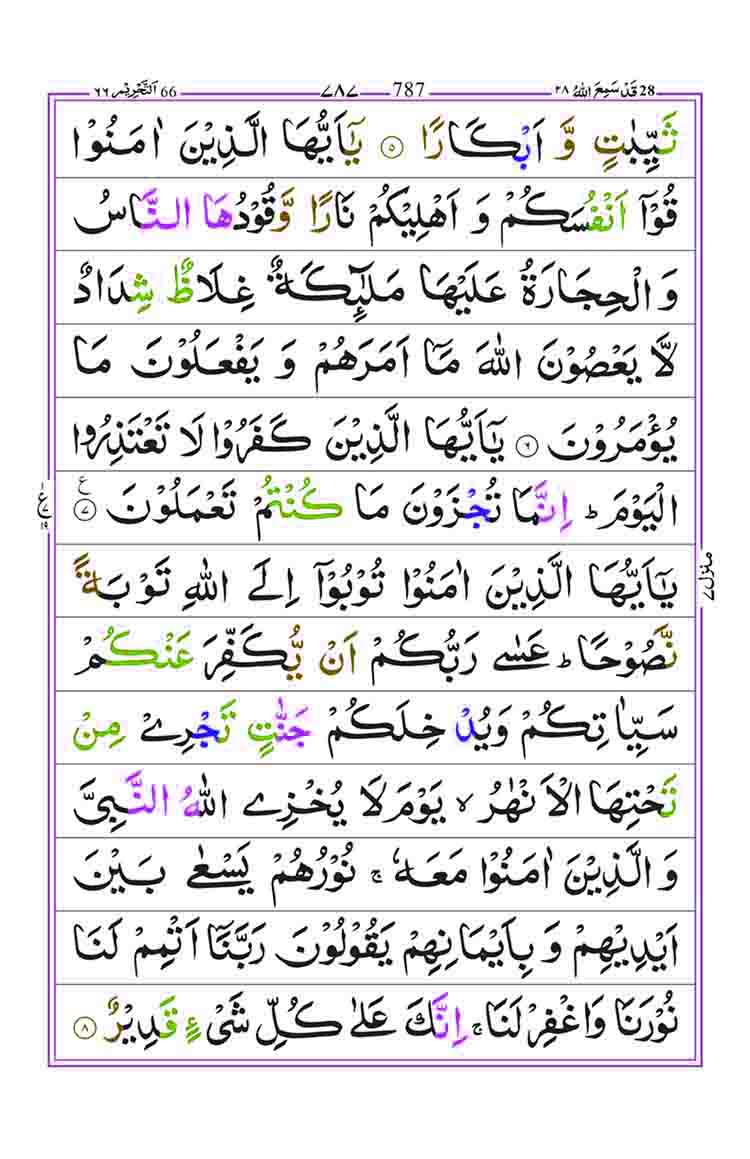 28 قَدْ سَمِعَ اللّٰهُ ٢٨ 787 ٧٨٧ 66 اَلتَّحْرِيْم ٦٦
ثَيِّبٰتٍ وَّ اَبْكَارًا ﴿۵﴾ يٰۤاَيُّهَا الَّذِيْنَ اٰمَنُوْا
قُوْۤا اَنْفُسَكُمْ وَ اَهْلِيْكُمْ نَارًا وَّقُوْدُهَا النَّاسُ
وَ الْحِجَارَةُ عَلَيْهَا مَلٰٓئِكَةٌ غِلَاظٌ شِدَادٌ
لَّا يَعْصُوْنَ اللّٰهَ مَاۤ اَمَرَهُمْ وَ يَفْعَلُوْنَ مَا
يُؤْمَرُوْنَ ﴿۶﴾ يٰۤاَيُّهَا الَّذِيْنَ كَفَرُوْا لَا تَعْتَذِرُوا
الْيَوْمَ ؕ اِنَّمَا تُجْزَوْنَ مَا كُنْتُمْ تَعْمَلُوْنَ ﴿۷﴾ ع
١ ع ٧ ١٩
يٰۤاَيُّهَا الَّذِيْنَ اٰمَنُوْا تُوْبُوْۤا اِلَى اللّٰهِ تَوْبَةً
منزل ٧
نَّصُوْحًا ؕ عَسٰى رَبُّكُمْ اَنْ يُّكَفِّرَ عَنْكُمْ
سَيِّاٰتِكُمْ وَيُدْخِلَكُمْ جَنّٰتٍ تَجْرِيْ مِنْ
تَحْتِهَا الْاَنْهٰرُ ۙ يَوْمَ لَا يُخْزِى اللّٰهُ النَّبِيَّ
وَ الَّذِيْنَ اٰمَنُوْا مَعَهٗ ۚ نُوْرُهُمْ يَسْعٰى بَيْنَ
اَيْدِيْهِمْ وَ بِاَيْمَانِهِمْ يَقُوْلُوْنَ رَبَّنَاۤ اَتْمِمْ لَنَا
نُوْرَنَا وَاغْفِرْ لَنَا ۚ اِنَّكَ عَلٰى كُلِّ شَيْءٍ قَدِيْرٌ ﴿۸﴾